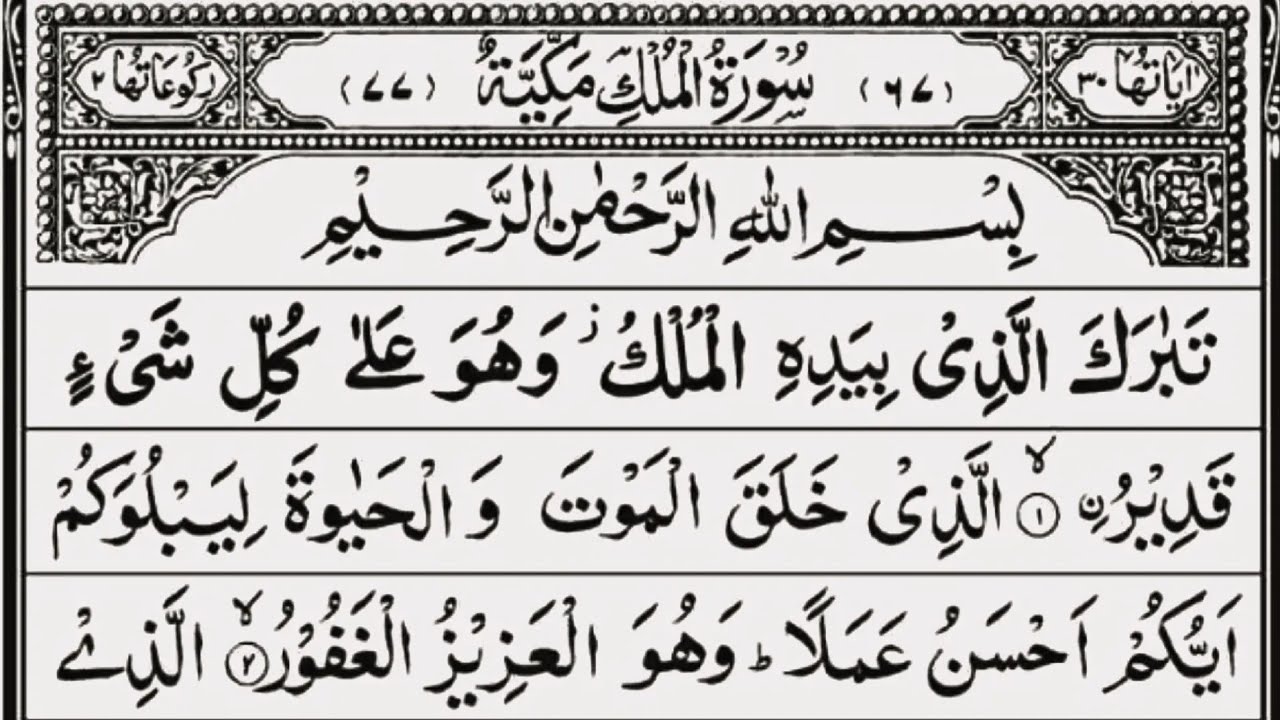 اٰیاتها ۳۰ (۶۷) سُوْرَةُ الْمُلْكِ مَكِّیَّةٌ (۷۷) ركوعاتها ۲
بِسْمِ اللّٰهِ الرَّحْمٰنِ الرَّحِیْمِ
تَبٰرَكَ الَّذِیْ بِیَدِهِ الْمُلْكُ ؗ وَهُوَ عَلٰی كُلِّ شَیْءٍ
قَدِیْرُ ۨ ۙ﴿۱﴾ الَّذِیْ خَلَقَ الْمَوْتَ وَ الْحَیٰوةَ لِیَبْلُوَكُمْ
اَیُّكُمْ اَحْسَنُ عَمَلًا ؕ وَهُوَ الْعَزِیْزُ الْغَفُوْرُ ۙ﴿۲﴾ الَّذِیْ